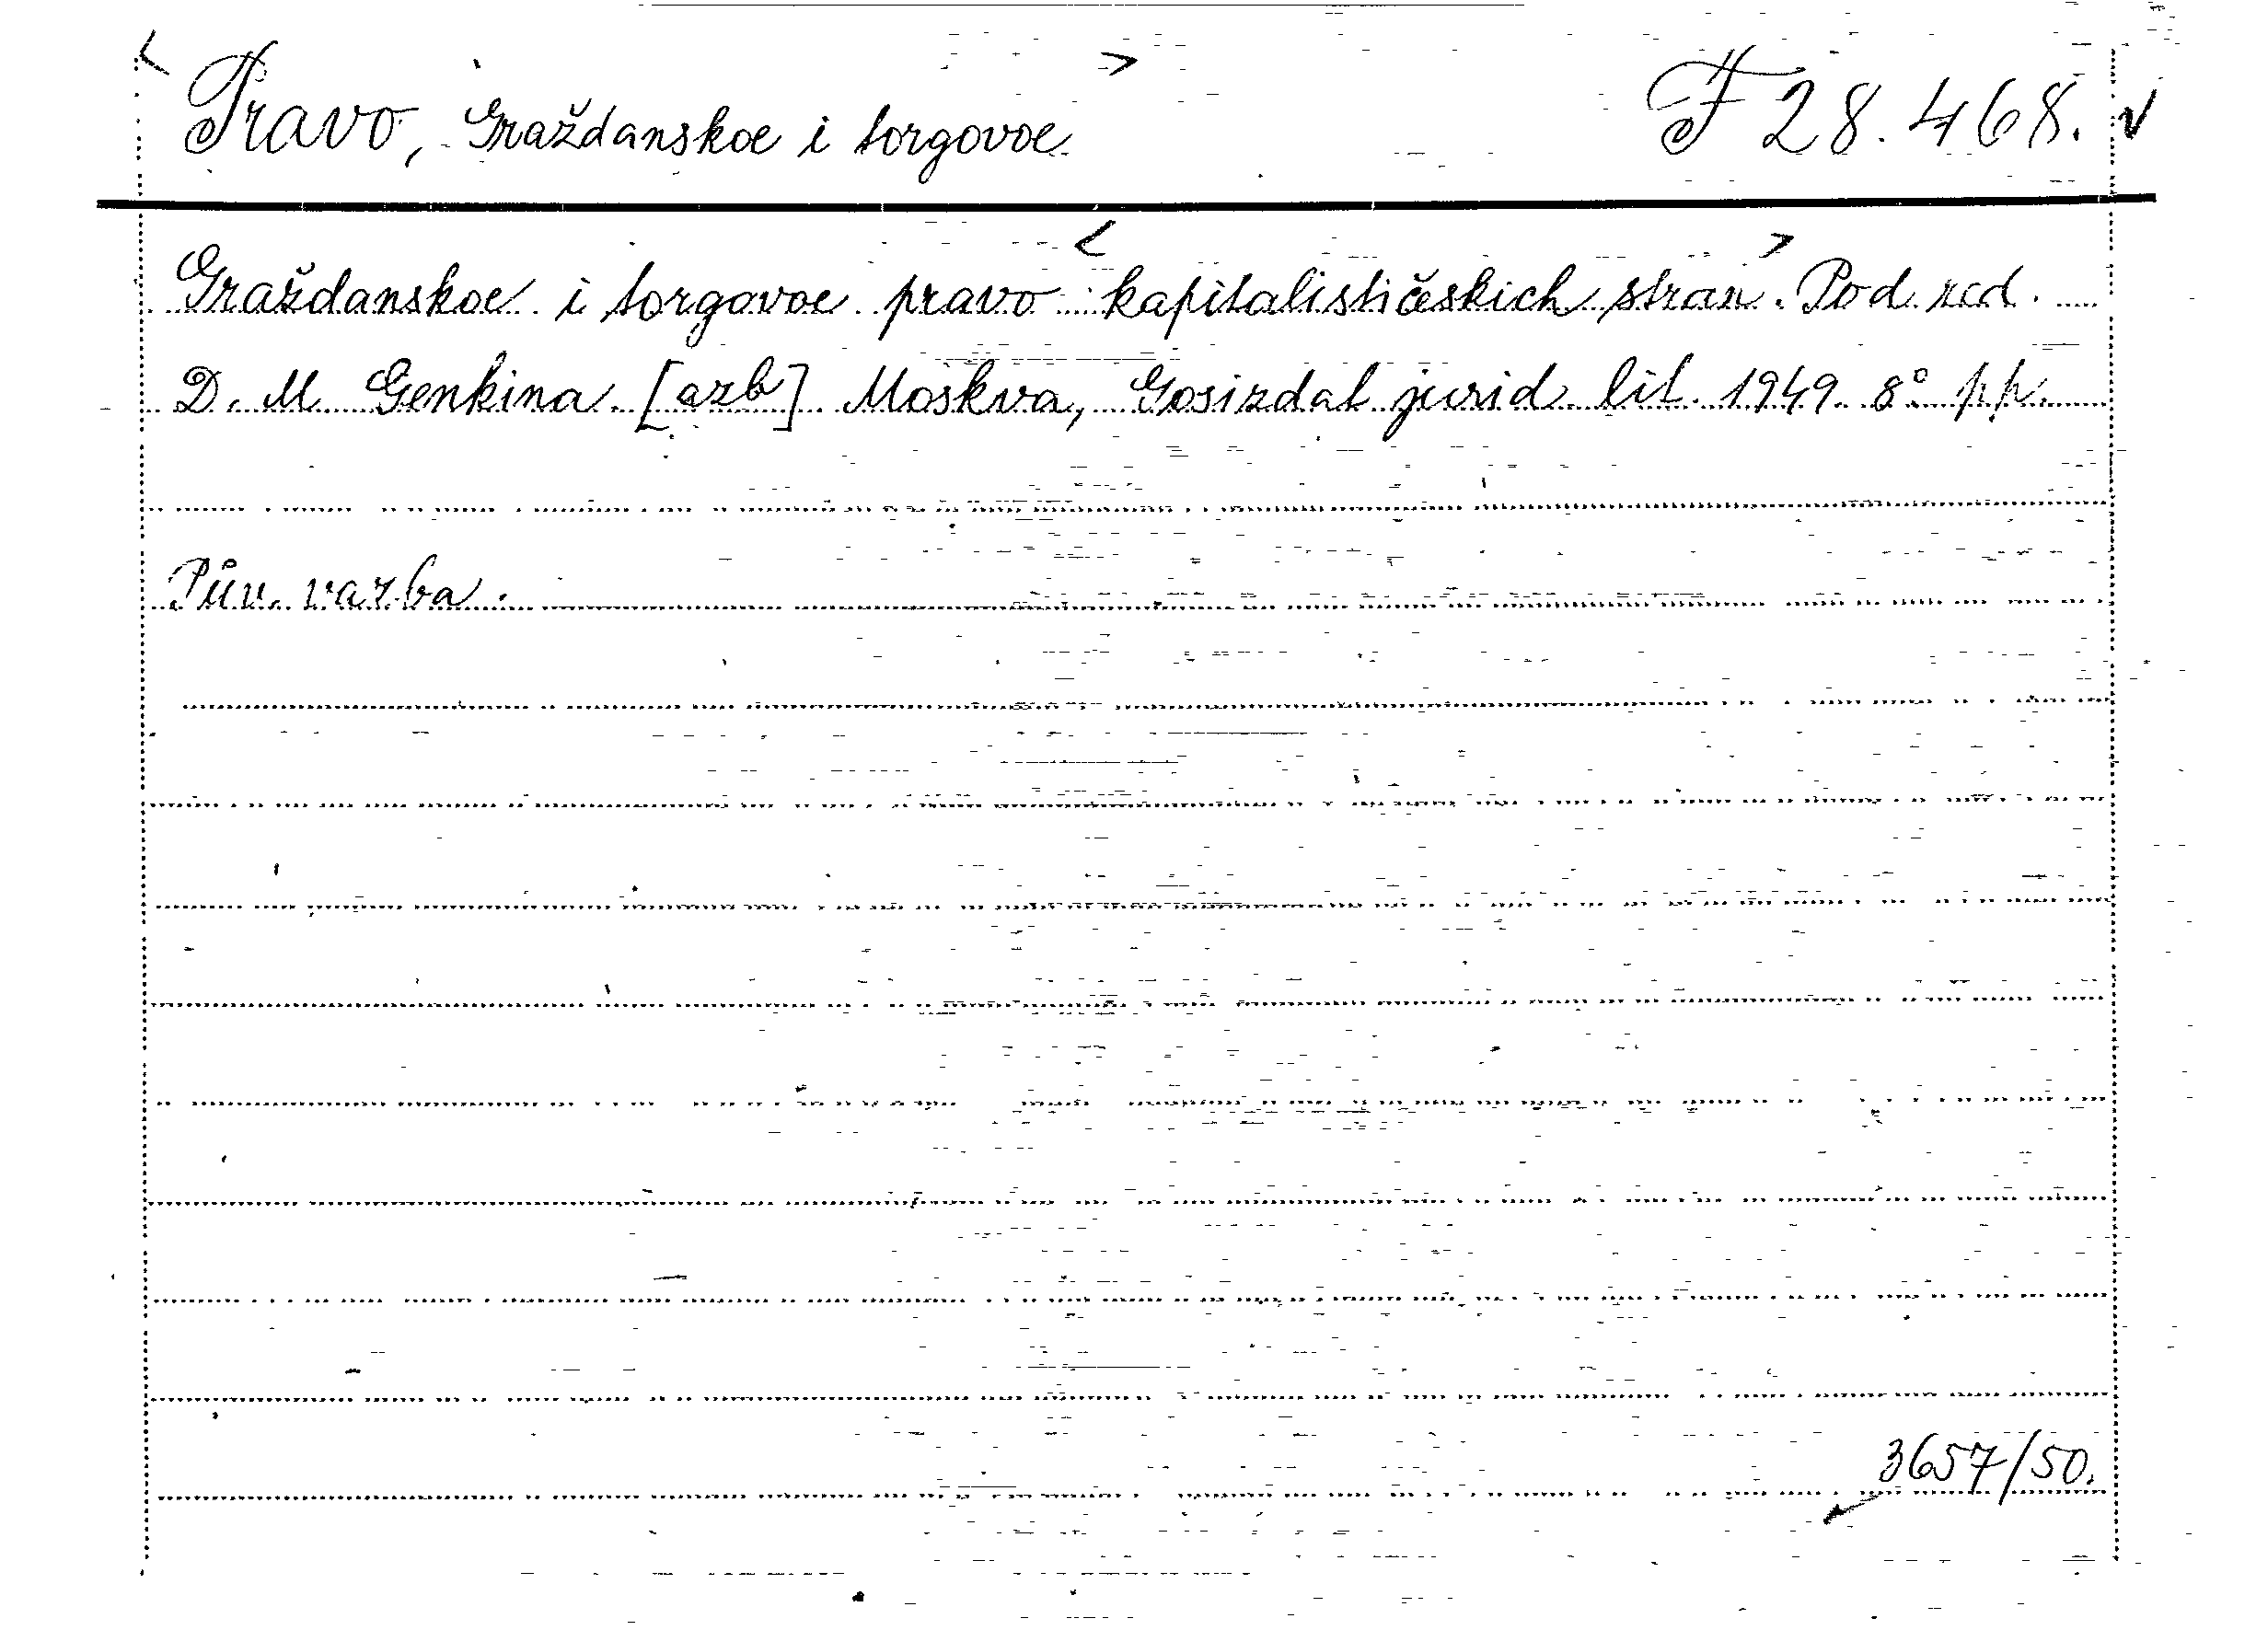 < Pravo, Graždanskoe i torgovoe > F 28.468. ✓
Graždanskoe i torgovoe pravo < kapitalističeskich stran >. Pod red.
D. M Genkina. [azb] Moskva, Gosizdat jurid. lit. 1949. 8° pp.
Pův. vazba.
3657/50.